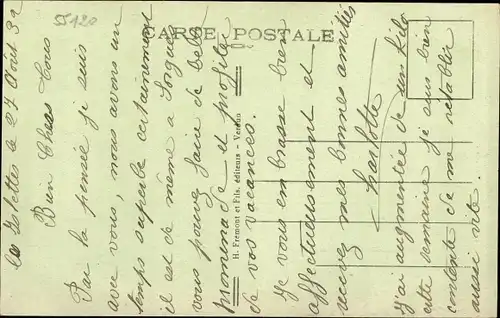 55120
CARTE POSTALE
H. Frémont et Fils, éditeurs - Verdun
Les Islettes le 27 Août 32
Bien Chers tous
Par la pensée je suis
avec vous, nous avons un
temps superbe certainement
il est de même à
vous pouvez faire de belle
promenade et profiter
de vos vacances.
Je vous embrasse bien
affectueusement et
recevez mes bonnes amitiés
Charlotte
J'ai augmentée de un kilo
cette semaine je suis bien
contente de me rétablir
aussi vite.